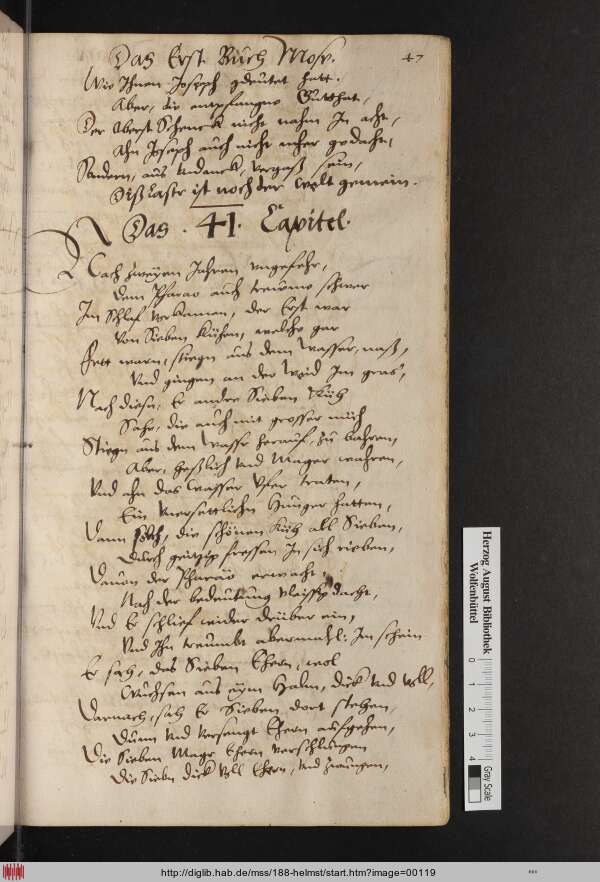 Das Erst Buch Mose.
47
Wie Ihnen Joseph gdeutet hett.
Aber, die entpfangne Gutthat,
Der Oberst Schenck nicht nahm In acht,
Ahn Joseph auch nicht mher gedacht,
Sondern, aus Undanck, vergaß sein,
Diß laster ist noch der welt gemein.
Das . 41. Capitel.
Nach zweyen Jahren ungefehr,
Dem Pharao auch treume schwer
Im Schlaf vorkamen, der Erst war
Von Sieben Kühen, welche gar
Fett warn, stiegn aus dem Wasser, naß,
Und giengen an der Weid Im gras,
Nach diesn, Er andre Sieben Küh
Sahe, die auch mit grosser müh
Stiegn aus dem Wasser herauf,
Aber, heßlich Und Mager wahren,
Und ahn das Wasser Ufer traten,
Ein Unersettlichn Hunger hatten,
Dann solch, die schönen Küh all Sieben,
Durch geitzig fressen In sich rieben,
Dauon der Pharao erwacht,
Nach der bedeutung vleissig dacht,
Und Er schlief wider drüber ein,
Und Ihn treumbt abermahl: Im schein
Er sah, das Sieben Ehern, wol
Wuchsen aus eym Halm, dick Und voll,
Darnach, sah Er Sieben dort stehen,
Dünn Und versengt Ehern aufgehen,
Die Sieben Magr Ehern verschlungen
Die Siebn dick voll Ehern, Und zwungen,
Herzog August Bibliothek
Wolfenbüttel
0 1 2 3 4
Gray Scale
http://diglib.hab.de/mss/188-helmst/start.htm?image=00119